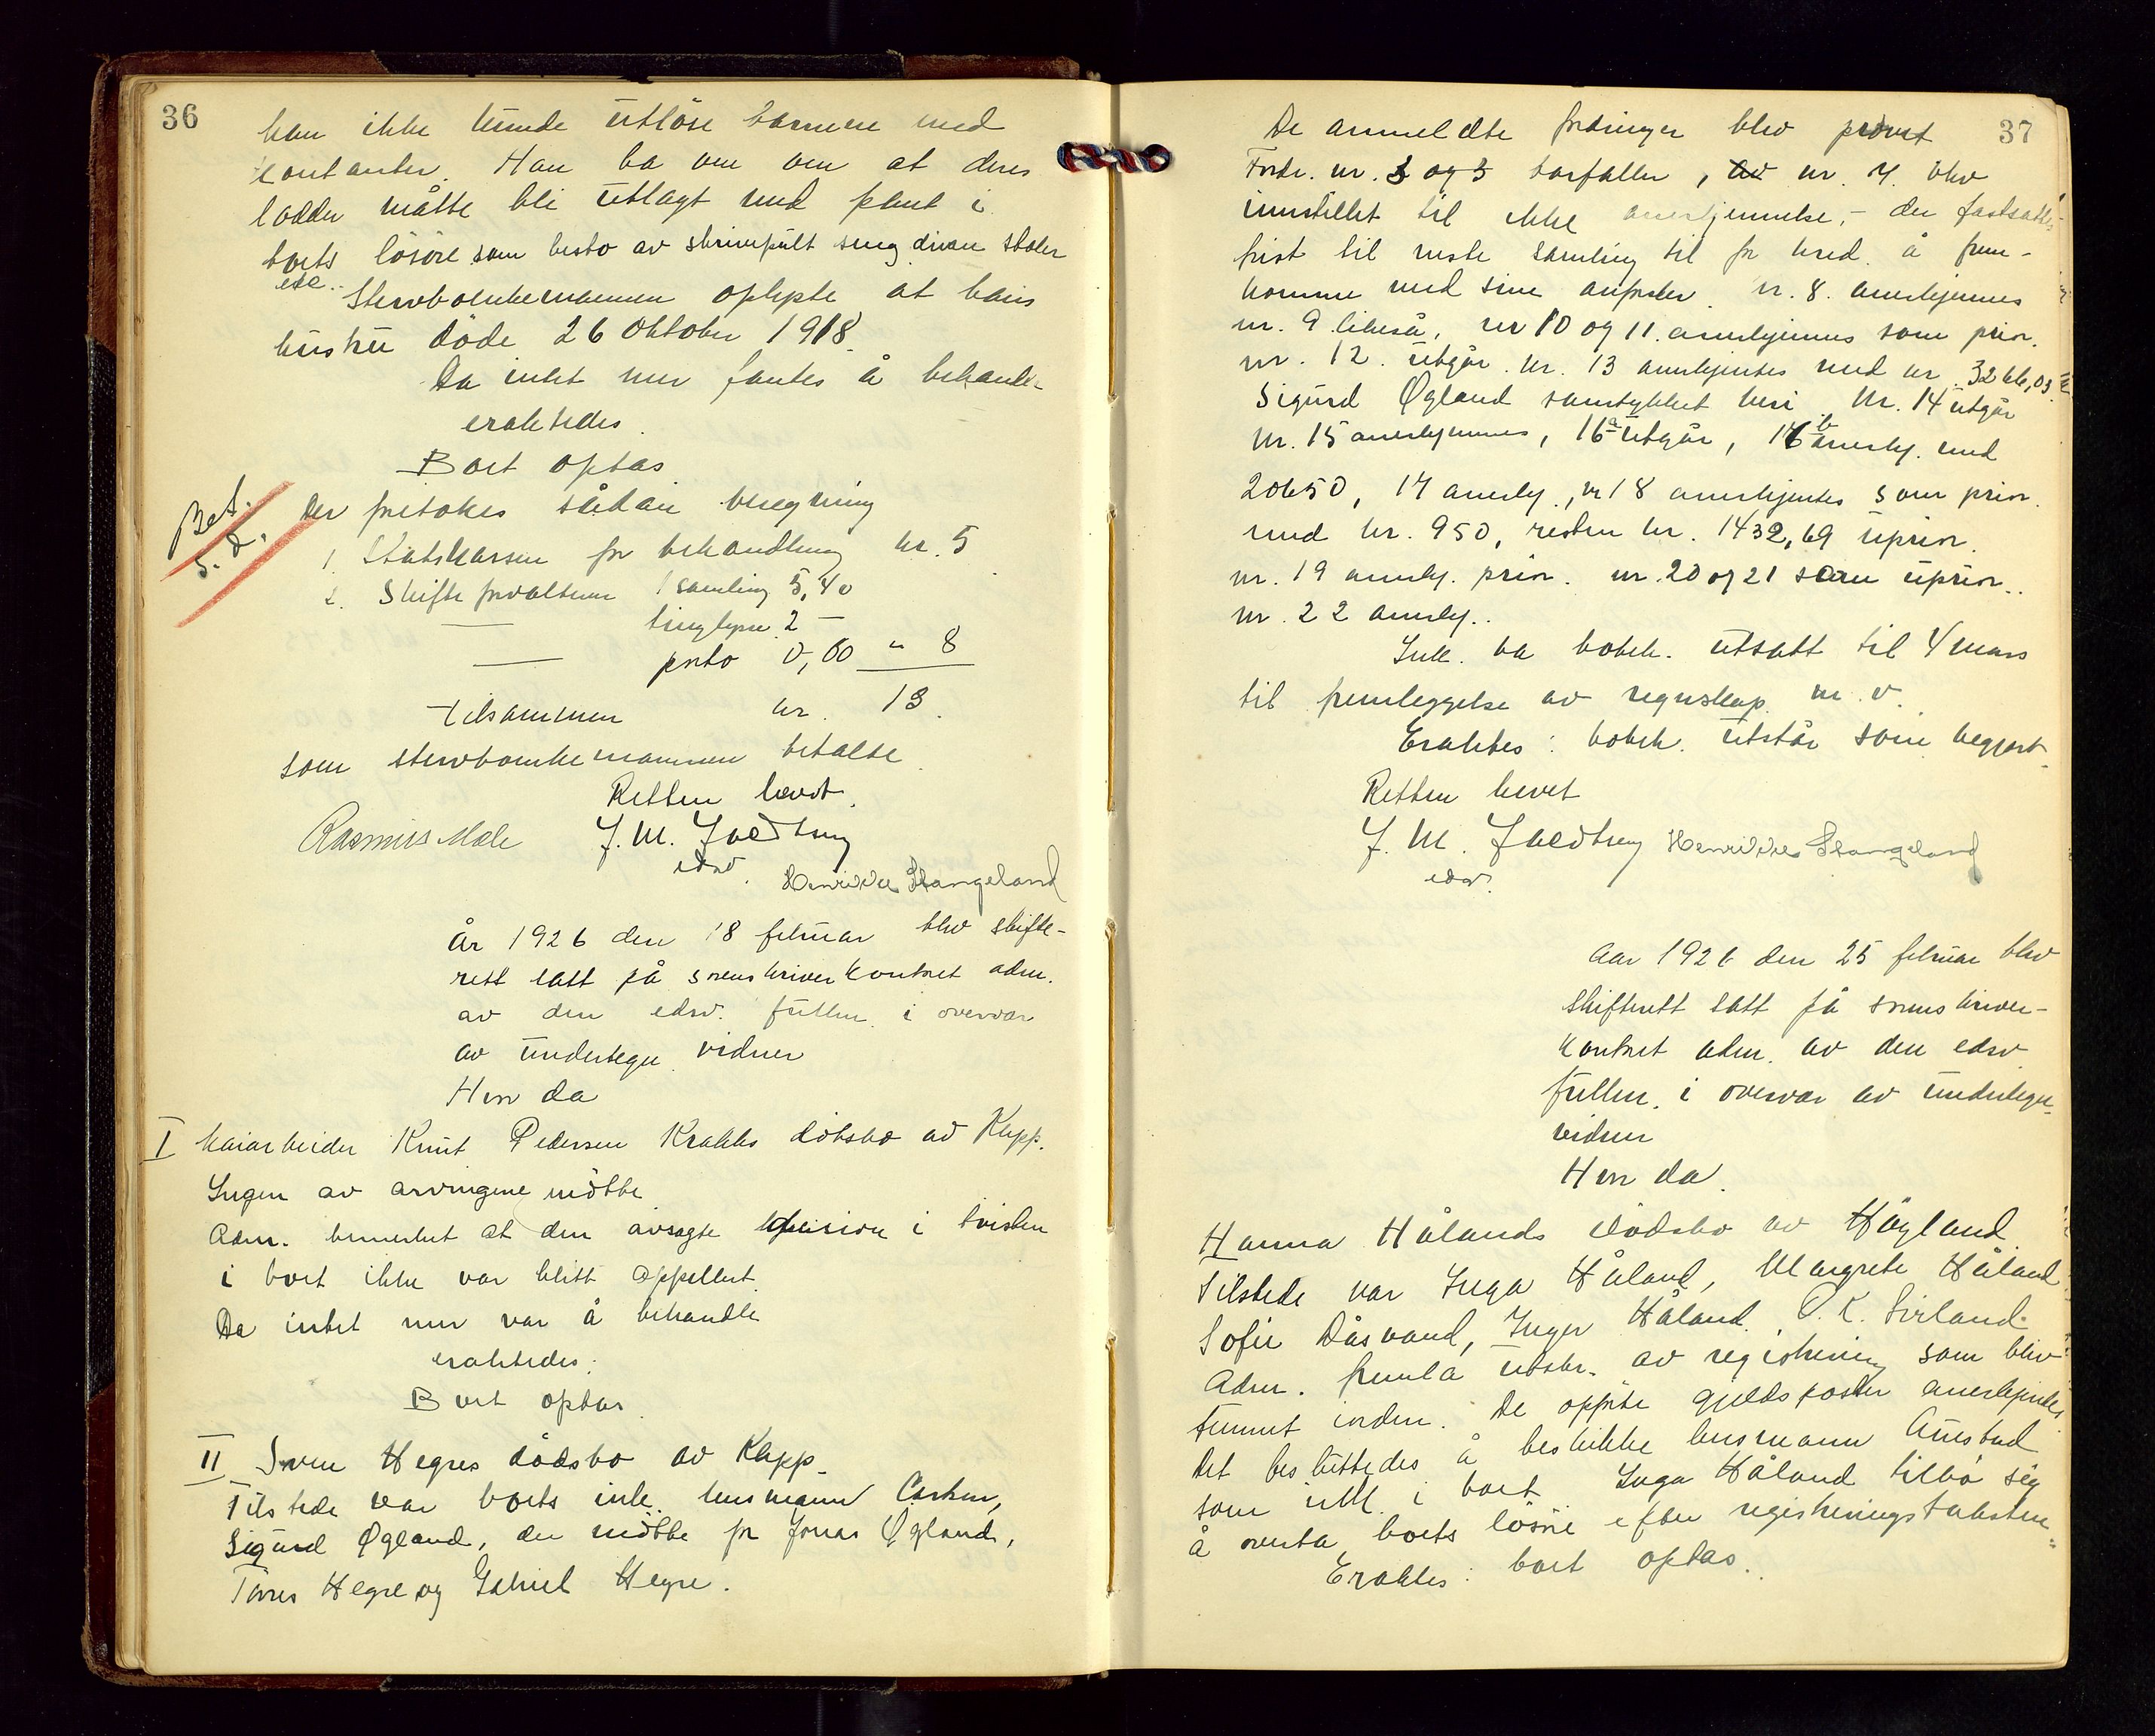 36
han ikke kunde utløse barnene med
kontanter. Han ba om om at deres
lodder måtte bli utlagt med pant i
boets løsøre som besto av skrivepult seng divan stoler
etc.
Stervboenkemannen oplyste at hans
hustru döde 26 oktober 1918.
Da intet mer fantes å behandle
eraktedes.
Boet optas
Bet.
Der fretokes sådan beregning
1. Statskassen for behandling kr. 5
2. Skifteforvalteren 1 samling 5,40
— tinglysn. 2 –
— porto 0,60 " 8
tilsammen kr. 13.
som stervboenkemannen betalte.
Retten hevet.
Rasmus Mæle J. M.
edsv. Henrikke Stangeland
År 1926 den 18 februar blev skifte-
rett satt på sorenskriverkontoret adm.
av den edsv. fullm. i overvær
av undertegn. vidner
Hvor da
I Kaiarbeider Knut Pedersen Krakks dödsbo av Klepp.
Ingen av arvingene mötte
Adm. bemerket at den avsagte decision i tvisten
i boet ikke var blitt appellert.
Da intet mer var å behandle
eraktedes:
Boet optas.
II Sven Hegres dödsbo av Klepp.
Tilstede var boets ink. lensmann
Sigurd Øgland, der mötte for Jonas Øgland,
Torres Hegre og Gabriel Hegre.
37
De anmeldte fordringer blev prövet
Fordr. nr. 3 og 5 bortfaller, av nr. 4. blev
innstillet til ikke anerkjennelse, – der fastsattes
frist til neste samling til for kred. å frem-
komme med sine anførsler. Nr. 8. anerkjennes
nr. 9 likeså, nr 10 og 11. anerkjennes som prior.
nr. 12. utgår. nr. 13 anerkjentes med kr. 3266,03.
Sigurd Øgland samtykket heri. Nr. 14 utgår
Nr. 15 anerkjennes, 16 a utgår, 16 b anerkj. med
20650, 17 anerkj., nr 18 anerkjentes som prior.
med kr. 950, resten kr. 1432,69 uprior.
nr. 19 anerkj. prior. nr. 20 og 21 som uprior..
nr. 22 anerkj..
Ink. ba bobeh. utsatt til 4 mars
til fremleggelse av regnskap m. v.
Eraktes: bobeh. utstår som begjært.
Retten hevet
J. M. Henrikke Stangeland
edsv.
Aar 1926 den 25 februar blev
skifterett satt på sorenskriver-
kontoret adm. av den edsv
fullm. i overvær av undertegn.
vidner
Hvor da.
Hanna Hålands dödsbo av Høyland.
Tilstede var Inga Håland, Margrete Håland
Sofie Dåsvand, Inger Håland. O. K. Sirland.
Adm. fremla utskr. av registrering som blev
funnet iorden. De opførte gjeldsposter anerkjentes
Det besluttedes å beskikke lensmann Austbad
som ink. i boet Inga Håland tilbø sig
å overta boets løsøre efter registreringstaksten.
Eraktes: boet optas.